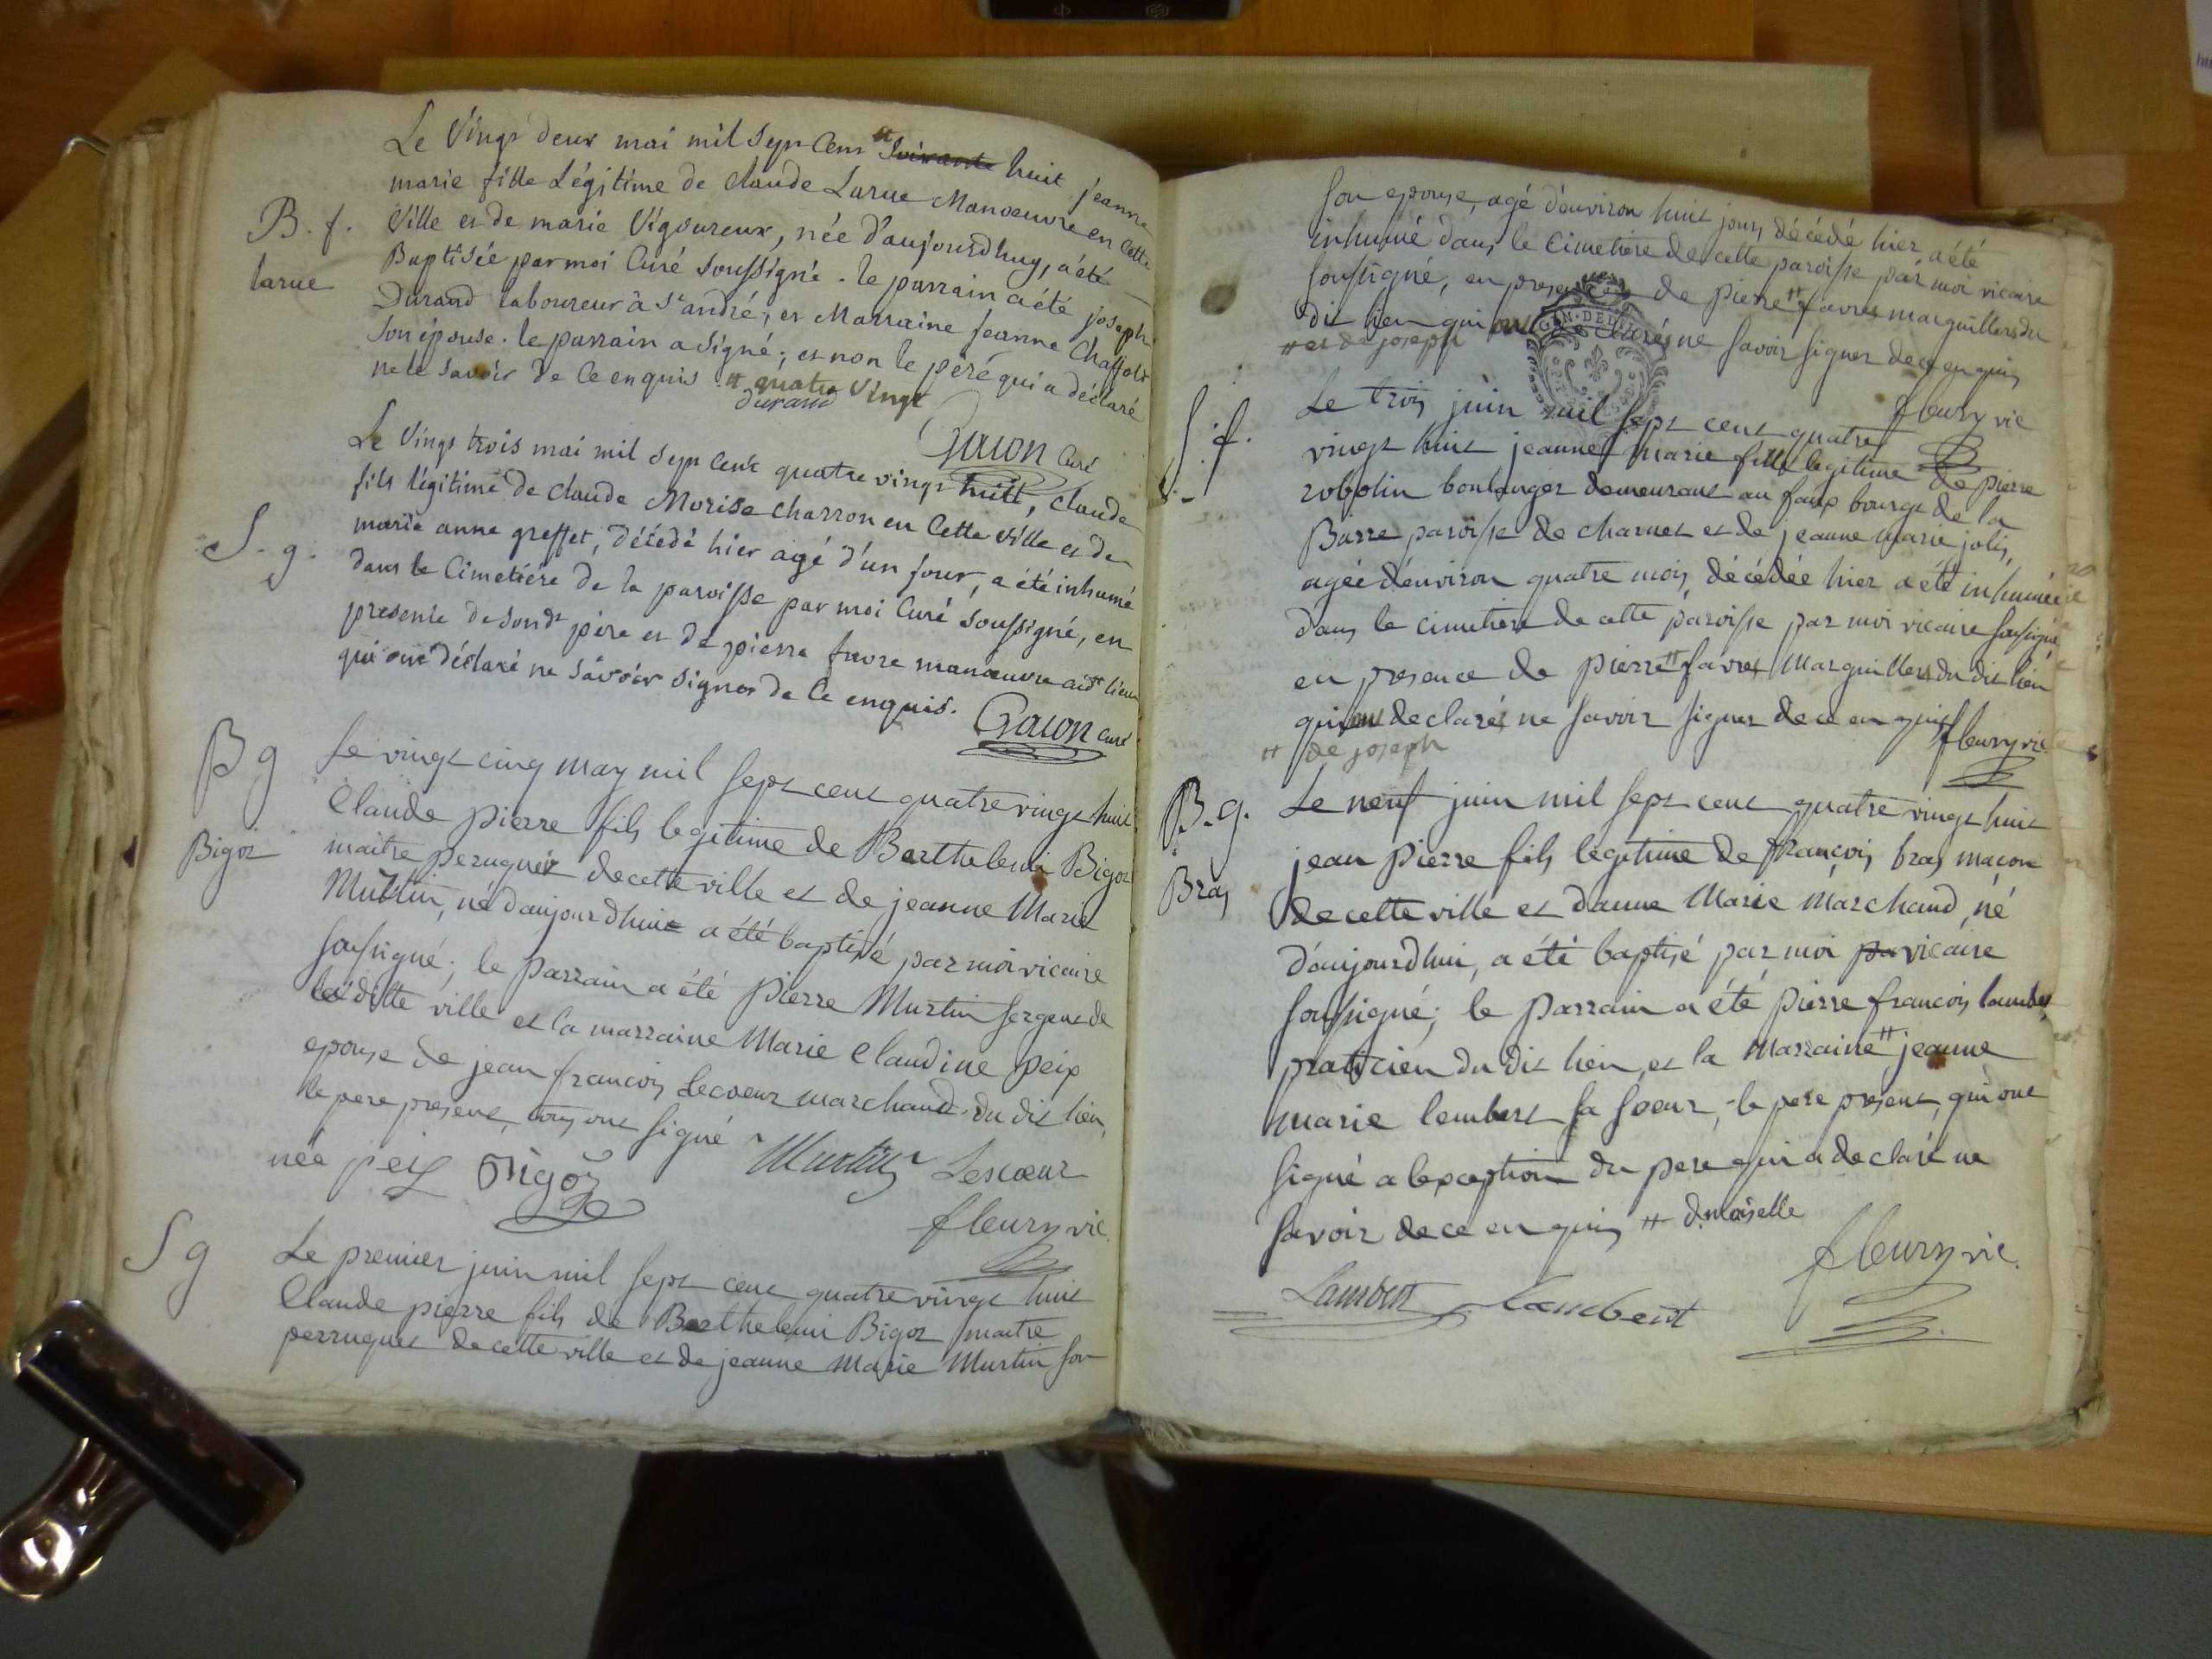 Le Vingt deux mai mil Sept Cens # Soixante huit jeanne
marie fille Légitime de Claude Larue Manoeuvre en Cette
B. f. Ville et de marie Vigoureux, née d'aujourdhuy, a été
larue Baptisée par moi Curé Soussigné. le parrain a été joseph
Durand laboureur à St andré, et Marraine jeanne
Son épouse. le parrain a Signé; et non le pere qui a déclaré
ne le Savoir de Ce enquis. # quatre Vingt
durand
Gacon Curé
Le Vingt trois mai mil Sept Cent quatre vingt huit, Claude
fils légitime de Claude Morise charron en Cette Ville et de
S. g. marie anne greffet, décédé hier agé d'un jour, a été inhumé
dans le Cimetiére de la paroisse par moi Curé Soussigné, en
presence de Sondt pére et de pierre favre manoeuvre audt lieu
qui ont déclaré ne Savoir Signer de Ce enquis.
Gacon Curé
B g Le vingt cinq may mil sept cent quatre vingt huit
Claude pierre fils legitime de Barthelemi Bigot
Bigot maitre peruquier de cette ville et de jeanne Marie
Murtin, né d'aujourdhuit a été baptisé par moi vicaire
soussigné; le parrain a été pierre Murtin sergent de
la ditte ville et la marraine Marie Claudine peix
epouse de jean francois Lecoeur marchand du dit lieu,
le pere present, tous ont signé
née peix Bigot Murtin Lescoeur
fleury vic.
S g Le premier juin mil sept cent quatre vingt huit
Claude pierre fils de Barthelemi Bigot maitre
perruquier de cette ville et de jeanne Marie Murtin son
son epouse, agé d'environ huit jours, décédé hier a été
inhumé dans le Cimetiere de cette paroisse par moi vicaire
soussigné, en presence de pierre # favres marguilliers du
dit lieu qui ont declarés ne savoir signer de ce enquis
# et de joseph
fleury vic
S. f. Le trois juin mil sept cent quatre
vingt huit jeanne marie fille legitime de pierre
robolin boulanger demeurant au faux bourgt de la
Barre paroisse de charnet et de jeanne marie jolis,
agée d'environ quatre mois, décédée hier a été inhumée
dans le cimetiere de cette paroisse par moi vicaire soussigné
en presence de pierre # favres Marguilliers du dit lieu
qui ont declarés ne savoir signer de ce enquis
# de joseph
fleury vic.
B. g. Le neuf juin mil sept cent quatre vingt huit
jean pierre fils legitime de françois bras maçon
Bras de cette ville et d'anne Marie Marchand, né
d'aujourdhui, a été baptisé par moi pa vicaire
soussigné; le parrain a été pierre francois lambert
praticien du dit lieu, et la Marraine # jeanne
marie lembert sa soeur, le pere present, qui ont
signé a lexception du pere qui a declaré ne
savoir de ce enquis # demoiselle
fleury vic.
Lambert Lambert